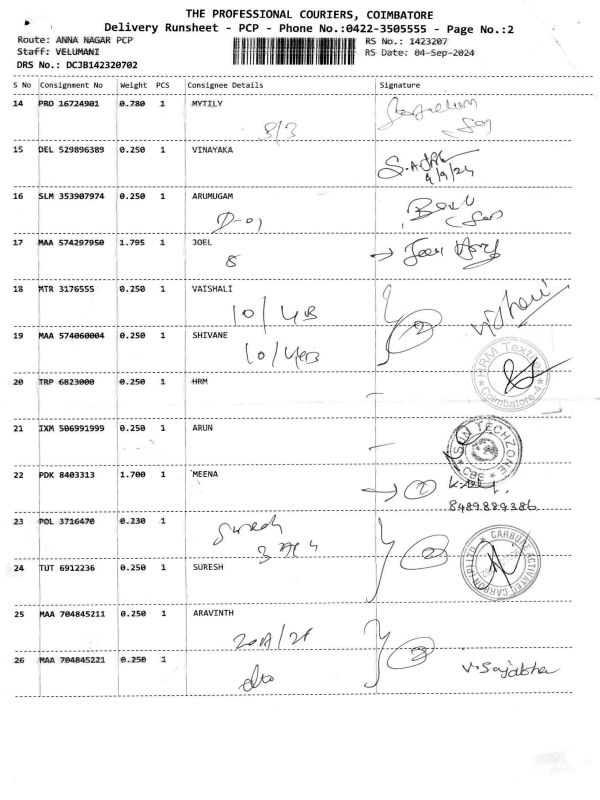 THE PROFESSIONAL COURIERS, COIMBATORE
Delivery Runsheet - PCP - Phone No.:0422-3505555 - Page No.:2
Route: ANNA NAGAR PCP
RS No.: 1423207
Staff: VELUMANI
RS Date: 04-Sep-2024
DRS No.: DCJB142320702
S No Consignment No Weight PCS Consignee Details Signature
14 PRO 16724901 0.780 1 MYTILY
8/3
15 DEL 529896389 0.250 1 VINAYAKA
4/9/24
16 SLM 353907974 0.250 1 ARUMUGAM
D-01
17 MAA 574297950 1.795 1 JOEL
8
18 MTR 3176555 0.250 1 VAISHALI
10/4B 2
19 MAA 574060004 0.250 1 SHIVANE
10/4B
HRM Textiles
Coimbatore-4
20 TRP 6823000 0.250 1 HRM
21 IXM 506991999 0.250 1 ARUN
SUN TECHZONE
CBE
22 PDK 8403313 1.700 1 MEENA
8489889386
23 POL 3716470 0.230 1
Suresh
2
CARBUZE ACTIVATED CARBON (P) LTD
24 TUT 6912236 0.250 1 SURESH
25 MAA 704845211 0.250 1 ARAVINTH
2
26 MAA 704845221 0.250 1
do